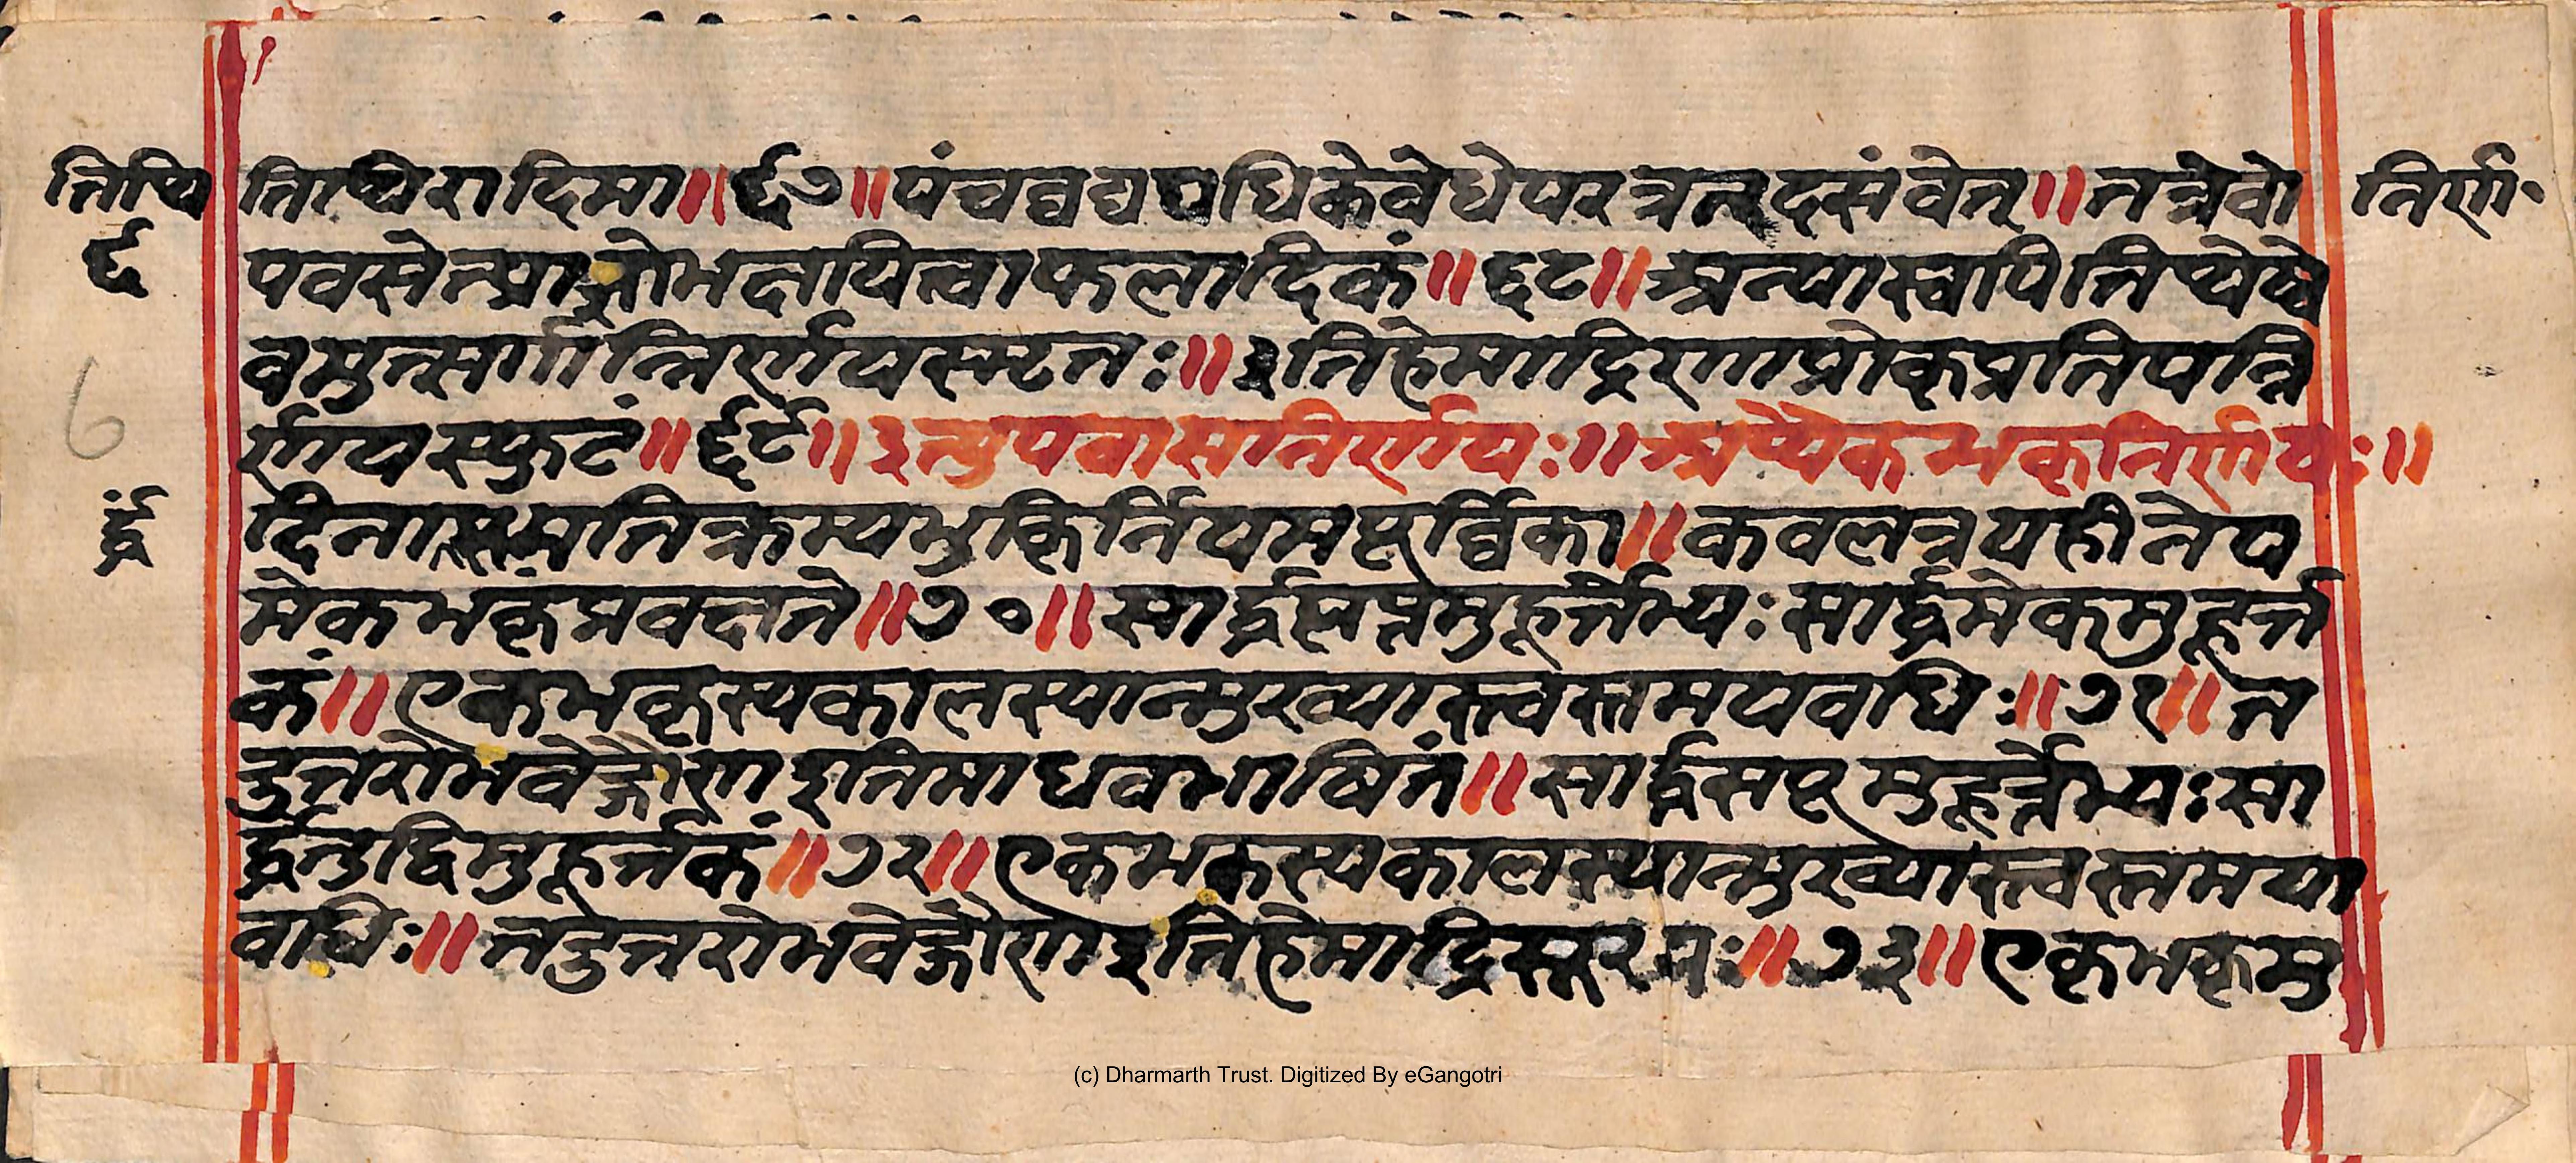 तिथि तिथिरादिमा॥६७॥पंचवघद्यधिकेवेधेपरत्रतदसंवेत्॥तत्रेवो तिर्ण॰
६ पवसेत्प्राज्ञोभक्षयित्वाफलादिकं॥६८॥अन्यास्वपितिथ्येष्वे
वमुत्सर्गान्निर्णयस्स्टतः॥इतिहेमाद्रिरणाप्रोक्तप्रतिपन्नि
र्णयस्फुटं॥६९॥इत्युपवासनिर्णयः॥अथैकभक्तनिर्णयः॥
दिनार्द्धमतिक्रम्यभुक्तिर्नियमपूर्विका॥कवलत्रयहीनेय
मेकभक्तंप्रवक्षते॥७०॥सार्द्धसप्तमुहूर्तेभ्यः सार्द्धमेकमुहूर्त्त
कं॥एकभक्तस्यकालस्यान्मुख्यास्त्वस्तमयवधिः॥७१॥त
दुत्तरोभवेद्गौणइतिमाधवभाषितं॥सार्द्धसप्तमुहूर्त्तेभ्यः सा
र्द्धन्तुद्विमुहूर्तकं॥७२॥एकभक्तस्यकालस्यान्मुख्यास्त्वस्तमया
वधिः॥तदुत्तरोभवेद्गौणइतिहेमाद्रि॥७३॥एकभक्तमु
(c) Dharmarth Trust. Digitized By eGangotri